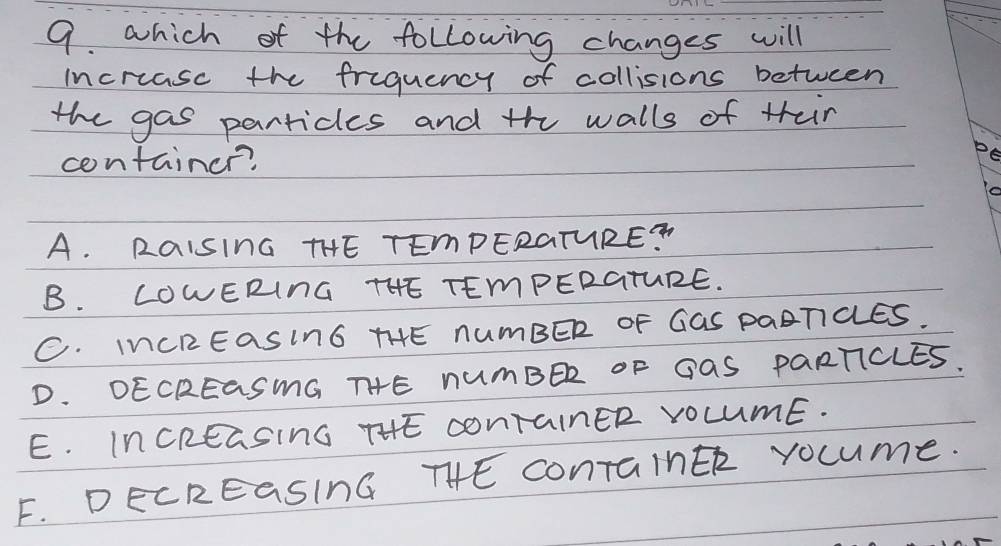 9. which of the following changes will
increase the frequency of collisions between
the gas particles and the walls of their
container?
A. RAISING THE TEMPERATURE?
B. LOWERING THE TEMPERATURE.
C. INCREASING THE NUMBER OF GAS PARTICLES.
D. DECREASING THE NUMBER OF GAS PARTICLES.
E. INCREASING THE CONTAINER VOLUME.
F. DECREASING THE CONTAINER VOLUME.